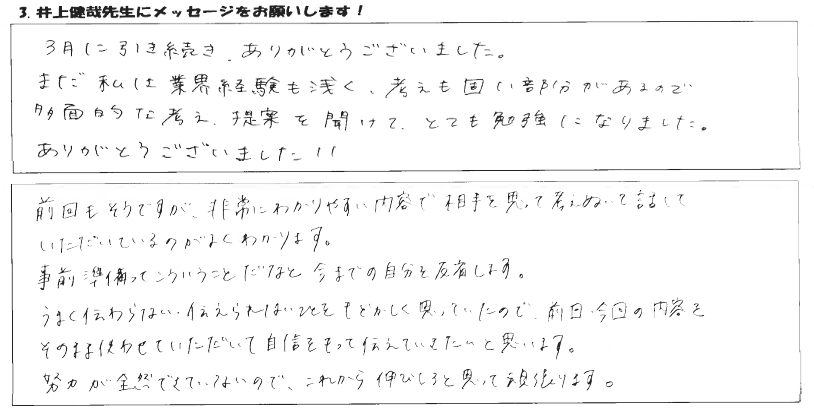 3. 井上健哉先生にメッセージをお願いします！
3月に引き続き、ありがとうございました。
まだ私は業界経験も浅く、考えも固い部分があるので
多面的な考え、提案を聞けて、とても勉強になりました。
ありがとうございました!!
前回もそうですが、非常にわかりやすい内容で相手を思って考えぬいて話して
いただいているのがよくわかります。
事前準備ってこういうことだなと今までの自分を反省します。
うまく伝わらない・伝えられないひとをもどかしく思っていたので、前回・今回の内容を
そのまま使わせていただいて自信をもって伝えていきたいと思います。
努力が全然できていないので、これから伸びしろと思って頑張ります。